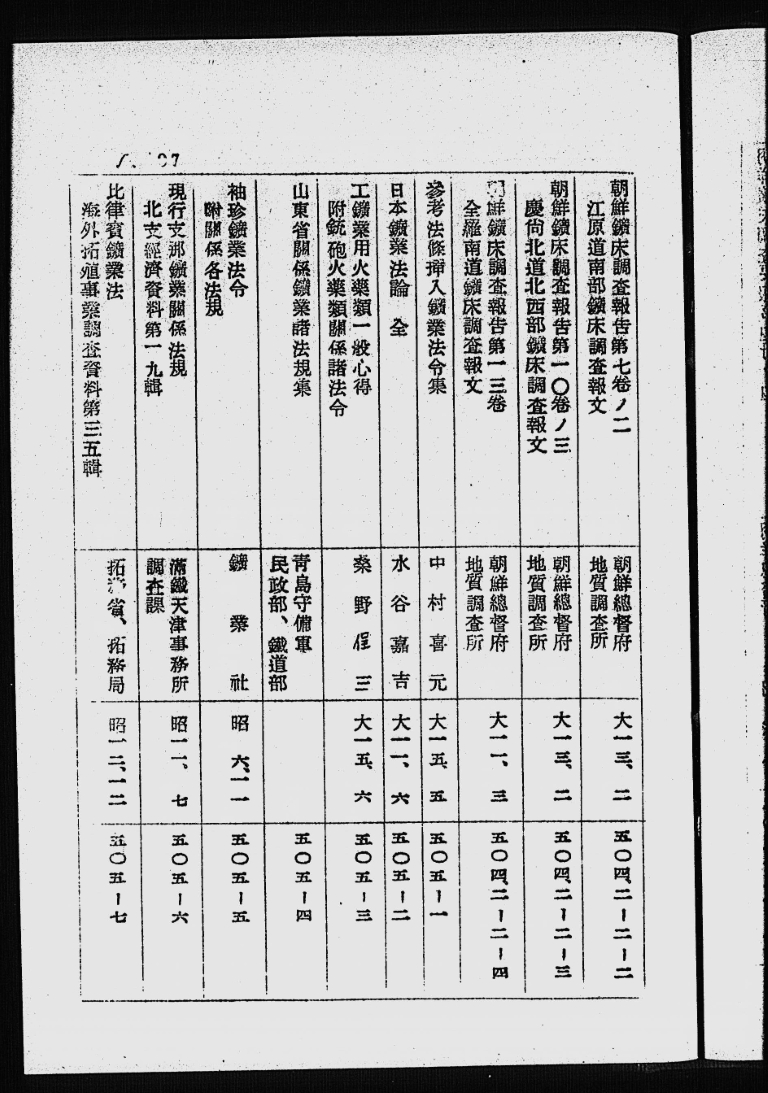 朝鮮鑛床調査報告第七卷ノ二
江原道南部鑛床調査報文
朝鮮總督府
地質調査所
大一三、二
五〇四、二ー二ー二
朝鮮鑛床調査報告第一〇卷ノ三
慶尙北道北西部鑛床調査報文
朝鮮總督府
地質調査所
大一三、二
五〇四、二ー二ー三
朝鮮鑛床調査報告第一三卷
全羅南道鑛床調査報文
朝鮮總督府
地質調査所
大一一、三
五〇四、二ー二ー四
參考法條揷入鑛業法令集
中村喜元
大一五、五
五〇五ー一
日本鑛業法論 全
水谷嘉吉
大一一、六
五〇五ー二
工鑛業用火藥類一般心得
附銃砲火藥類關係諸法令
桑野俚三
大一五、六
五〇五ー三
山東省關係鑛業諸法規集
靑島守備軍
民政部、鐵道部
五〇五ー四
袖珍鑛業法令
附關係各法規
鑛業社
昭六、一一
五〇五ー五
現行支那鑛業關係法規
北支經濟資料第一九輯
滿鐵天津事務所
調査課
昭一一、七
五〇五ー六
比律賓鑛業法
海外拓殖事業調査資料第三五輯
拓務省、拓務局
昭一二、一二
五〇五ー七